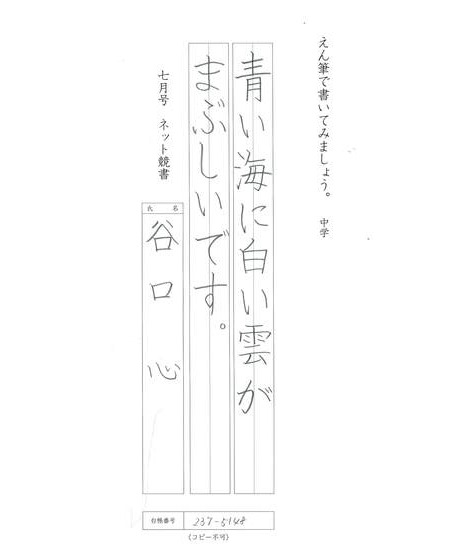 えん筆で書いてみましょう。 中学
青い海に白い雲が
まぶしいです。
七月号 ネット競書
氏名
谷口 心
台帳番号 237-5148
(コピー不可)